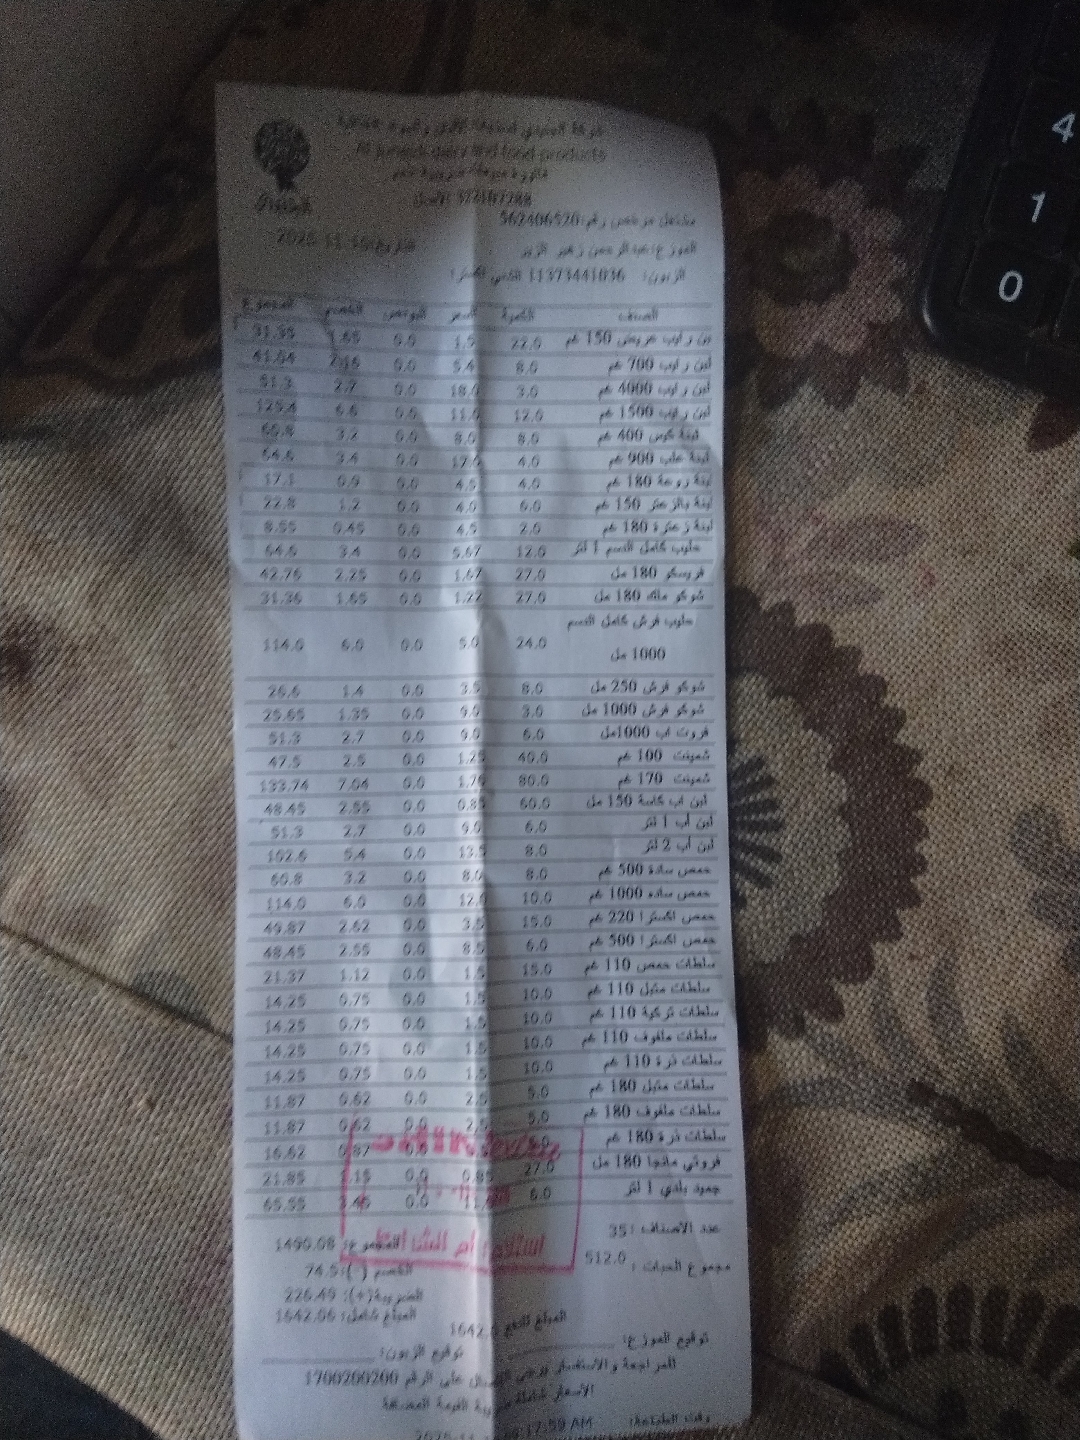 Al Juneidi dairy and food products
الجنيدي
مشتغل مرخص رقم: 562406520
التاريخ: 2025-11
الموزع: عبدالرحمن زهير الزير
الزبون: 11373441036
الصنف الكمية السعر البونص الخصم المجموع
لبن رايب عريض 150 غم 22.0 1.5 0.0 1.65 31.35
لبن رايب 700 غم 8.0 5.4 0.0 2.16 41.04
لبن رايب 4000 غم 3.0 18.0 0.0 2.7 51.3
لبن رايب 1500 غم 12.0 11.0 0.0 6.6 125.4
لبنة كيس 400 غم 8.0 8.0 0.0 3.2 60.8
لبنة علب 900 غم 4.0 17.0 0.0 3.4 64.6
لبنة روعة 180 غم 4.0 4.5 0.0 0.9 17.1
لبنة بالزعتر 150 غم 6.0 4.0 0.0 1.2 22.8
لبنة زعترة 180 غم 2.0 4.5 0.0 0.45 8.55
حليب كامل الدسم 1 لتر 12.0 5.67 0.0 3.4 64.6
فريسكو 180 مل 27.0 1.67 0.0 2.25 42.76
شوكو ملك 180 مل 27.0 1.22 0.0 1.65 31.36
حليب فرش كامل الدسم
1000 مل 24.0 5.0 0.0 6.0 114.0
شوكو فرش 250 مل 8.0 3.5 0.0 1.4 26.6
شوكو فرش 1000 مل 3.0 9.0 0.0 1.35 25.65
فروت اب 1000مل 6.0 9.0 0.0 2.7 51.3
شمينت 100 غم 40.0 1.25 0.0 2.5 47.5
شمينت 170 غم 80.0 1.76 0.0 7.04 133.74
لبن اب كاسة 150 مل 60.0 0.85 0.0 2.55 48.45
لبن أب 1 لتر 6.0 9.0 0.0 2.7 51.3
لبن أب 2 لتر 8.0 13.5 0.0 5.4 102.6
حمص سادة 500 غم 8.0 8.0 0.0 3.2 60.8
حمص ساده 1000 غم 10.0 12.0 0.0 6.0 114.0
حمص اكسترا 220 غم 15.0 3.5 0.0 2.62 49.87
حمص اكسترا 500 غم 6.0 8.5 0.0 2.55 48.45
سلطات حمص 110 غم 15.0 1.5 0.0 1.12 21.37
سلطات متبل 110 غم 10.0 1.5 0.0 0.75 14.25
سلطات تركية 110 غم 10.0 1.5 0.0 0.75 14.25
سلطات ملفوف 110 غم 10.0 1.5 0.0 0.75 14.25
سلطات ذرة 110 غم 10.0 1.5 0.0 0.75 14.25
سلطات متبل 180 غم 5.0 2.5 0.0 0.62 11.87
سلطات ملفوف 180 غم 5.0 2.5 0.0 0.62 11.87
سلطات ذرة 180 غم 0.87 16.62
فروتي مانجا 180 مل 27.0 0.85 0.0 1.15 21.85
جميد بلدي 1 لتر 6.0 0.0 3.45 65.55
عدد الاصناف: 35
المجموع: 1490.08
مجموع الحبات: 512.0
الخصم (-): 74.5
الضريبة(+): 226.49
المبلغ شامل: 1642.06
المبلغ للدفع 1642.
توقيع الموزع:
توقيع الزبون:
للمراجعة والاستفسار يرجى الاتصال على الرقم 1700200200
الأسعار شاملة ضريبة القيمة المضافة
وقت الطباعة: 17:59 AM
4
1
0